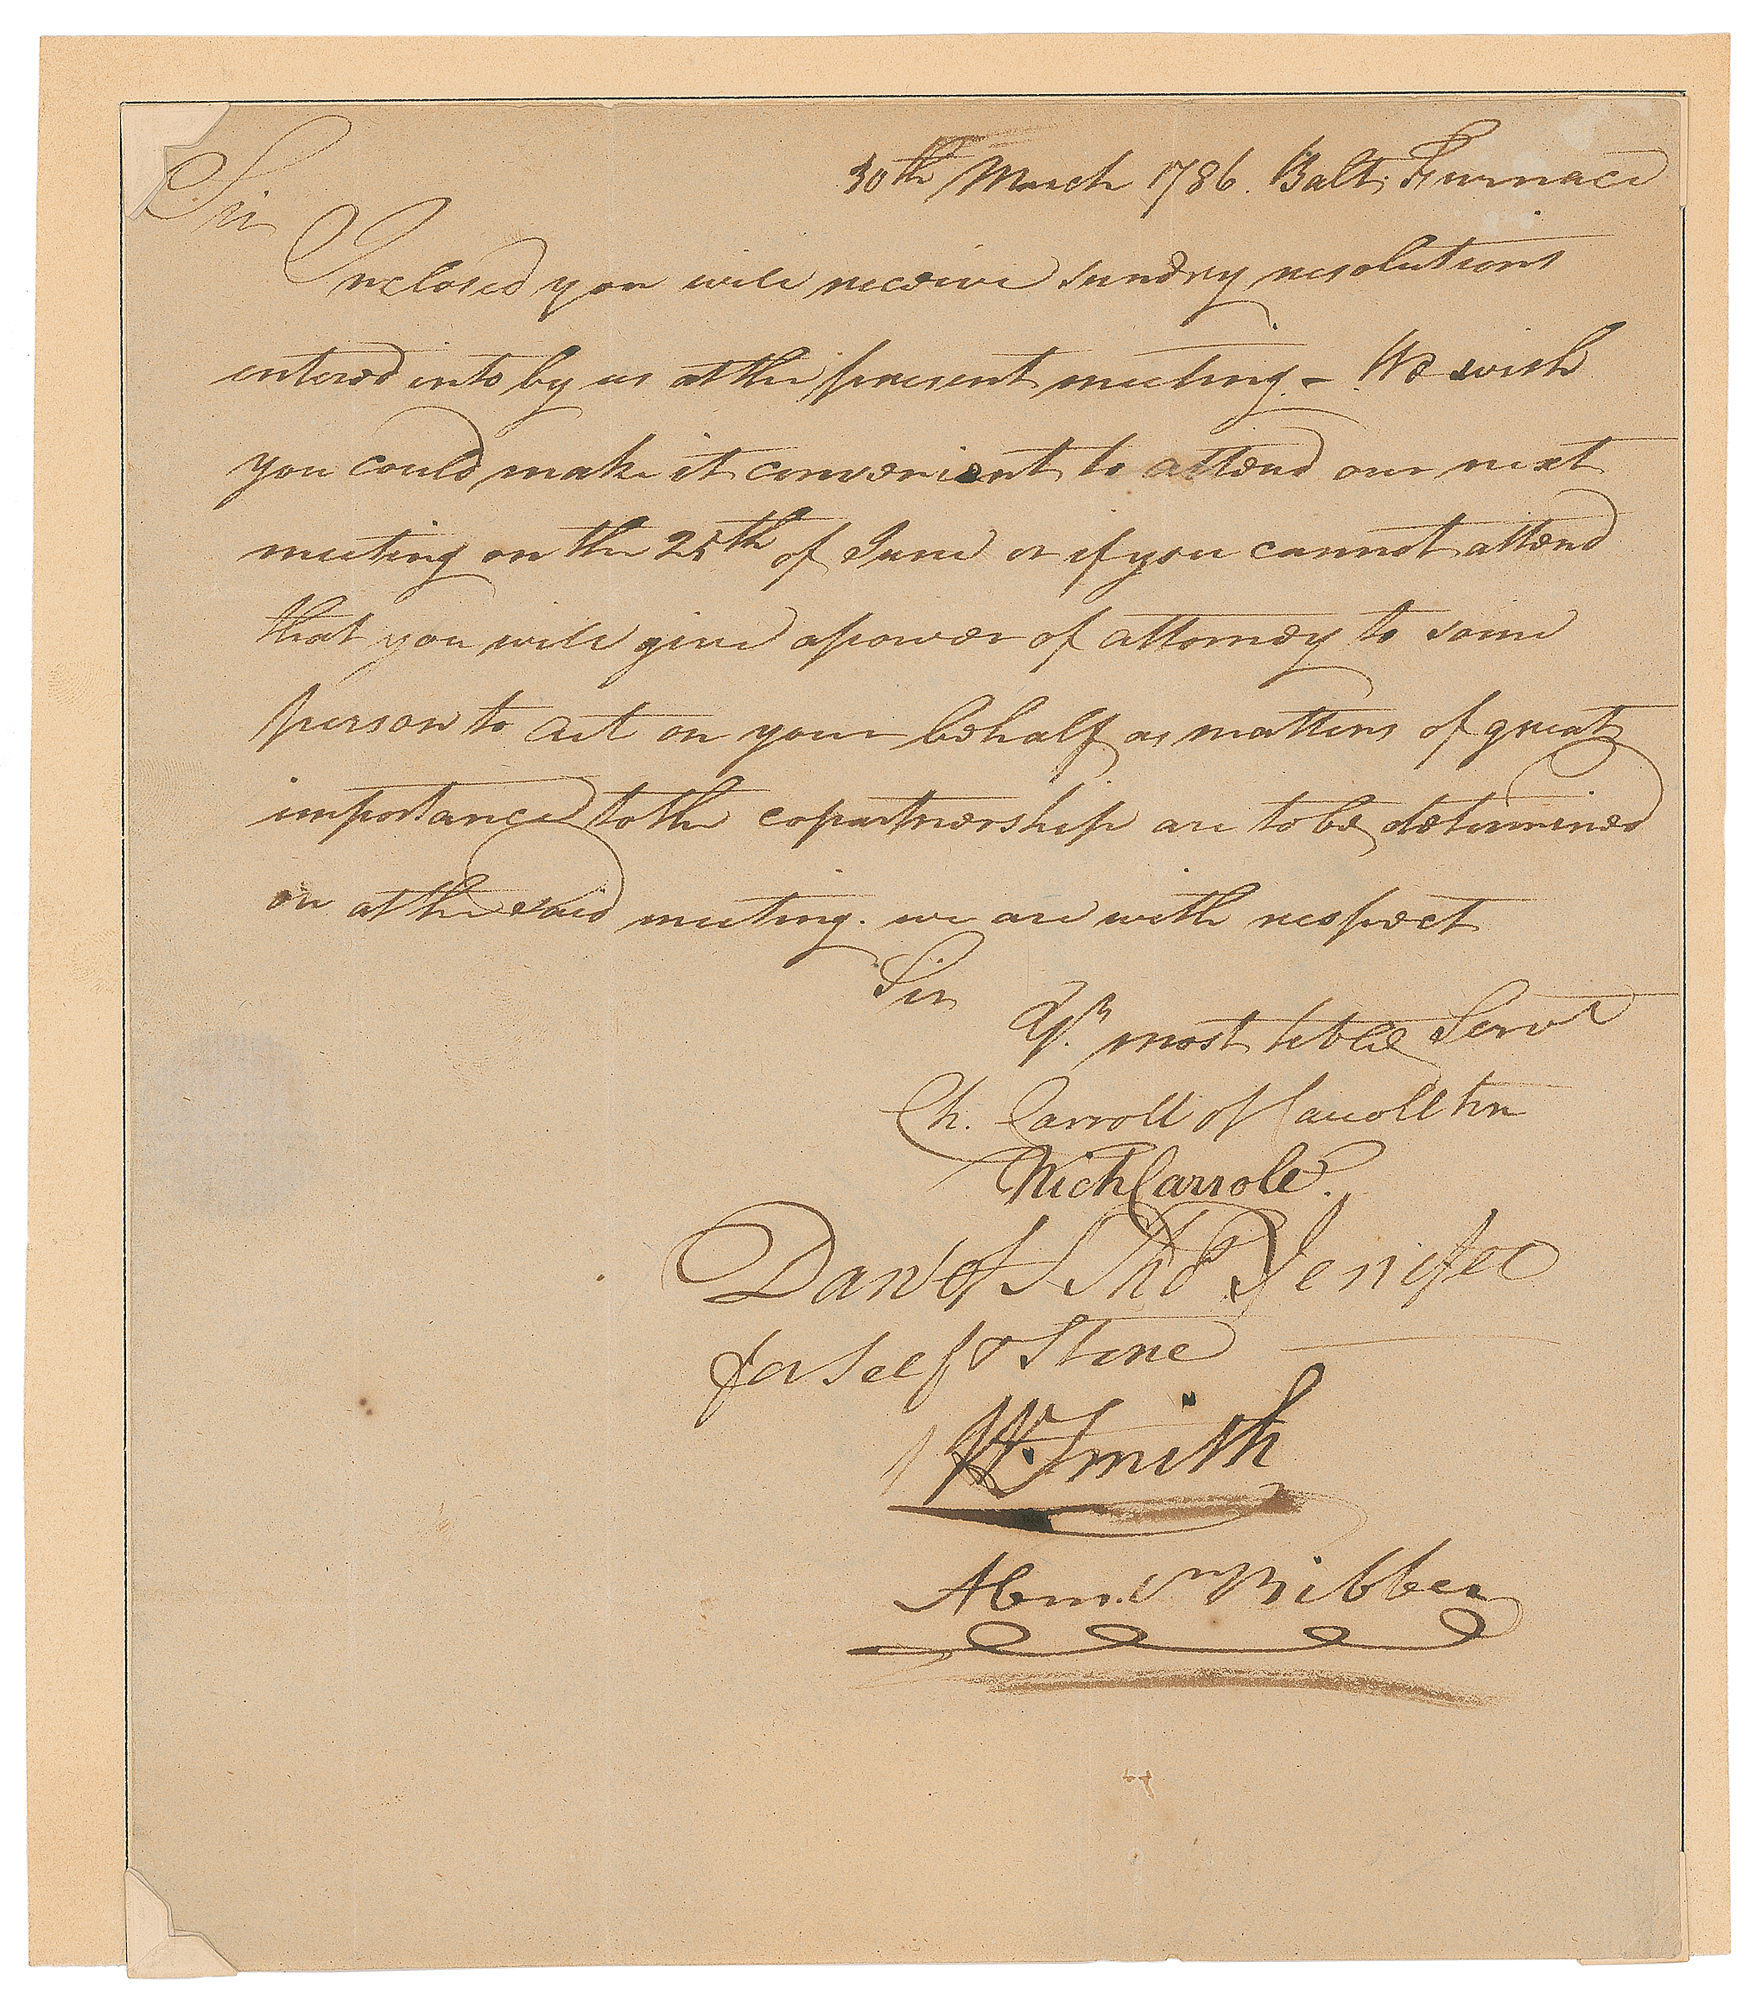 30th March 1786. Balt. Furnace
Sir
Inclosed you will receive sundry resolutions
entered into by us at the present meeting - We wish
you could make it convenient to attend our next
meeting on the 25th of June or if you cannot attend
that you will give a power of attorney to some
person to act on your behalf as matters of great
importance to the copartnership are to be determined
on at the said meeting. we are with respect
Sir
Yr. most hble Servt
Ch. Carroll of Carrollton
Nich Carroll.
Danl of St Thos Jenifer
for self & Stone
Wm Smith
Abm. Vn Bibber